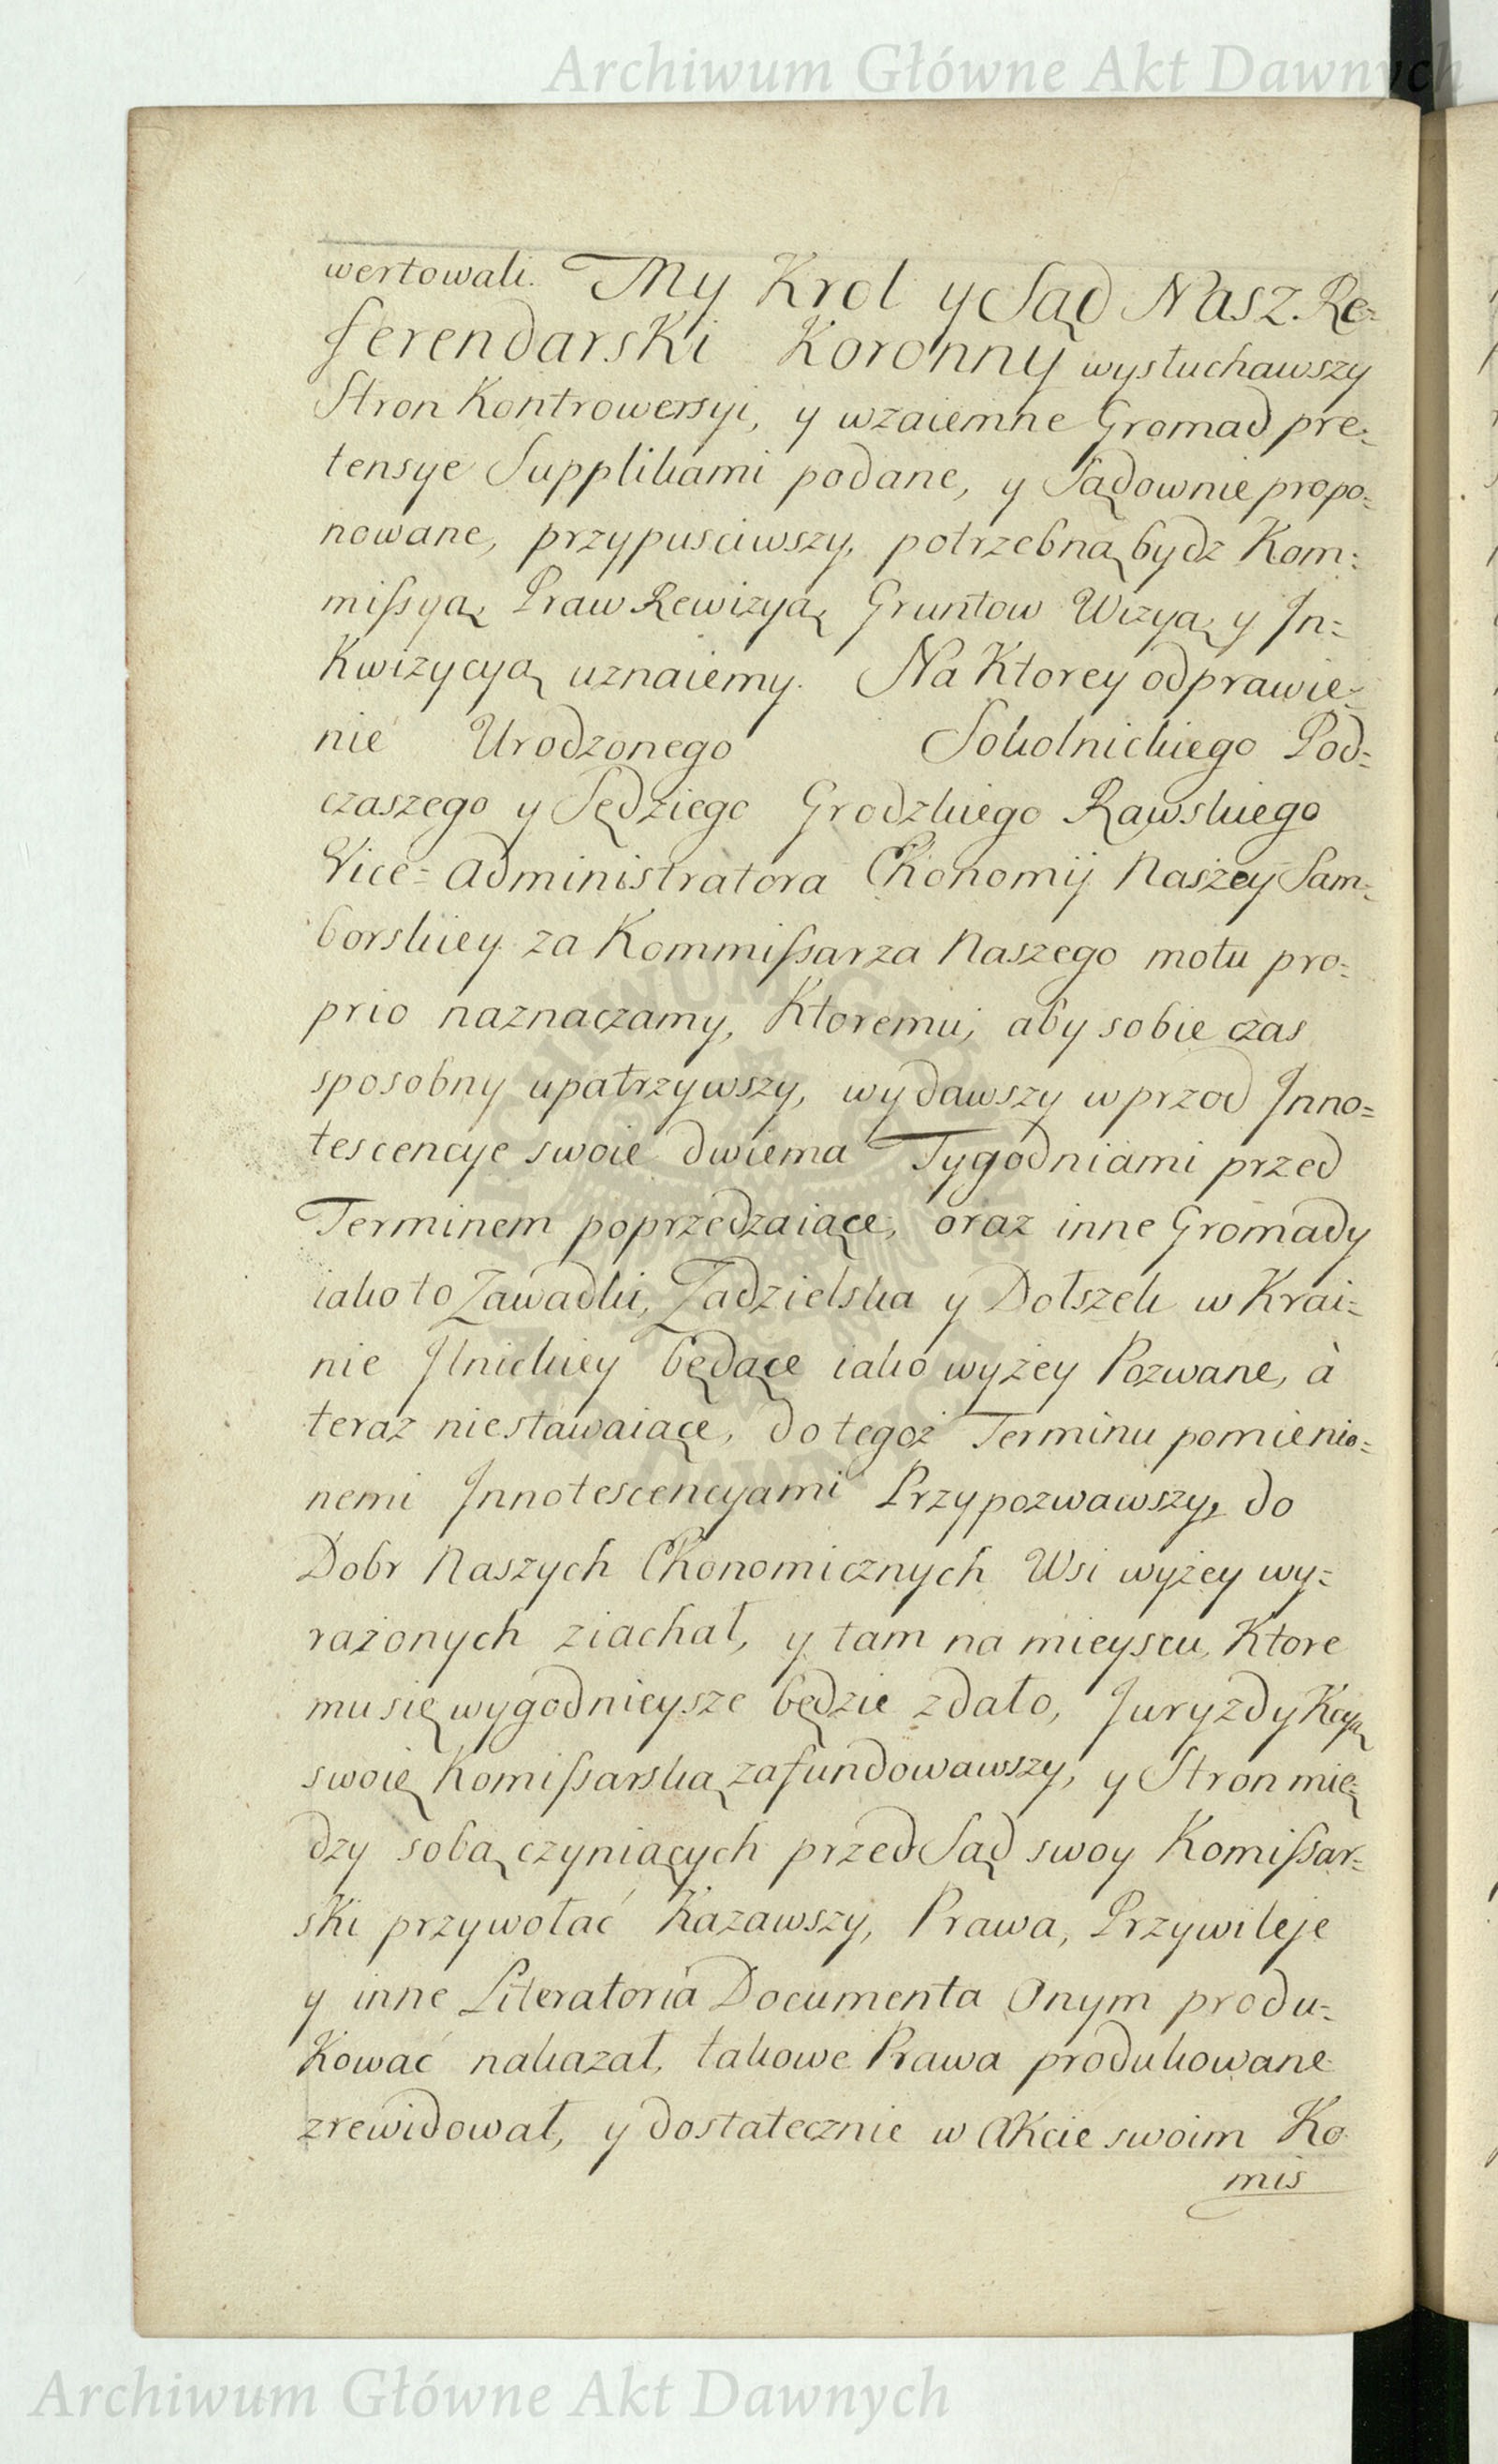 Archiwum Główne Akt Dawnych
wertowali. My Krol y Sąd Nasz Re=
ferendarski Koronny wysłuchawszy
Stron Kontrowersyi, y wzaiemne Gromad pre=
tensye Supplikami podane, y Sądownie propo=
nowane, przypusciwszy, potrzebną bydz Kom=
mifsyą, Praw Rewizyą, Gruntow Wizyą, y In=
kwizycyą uznaiemy. Na Ktorey odprawie=
nie Urodzonego Sokolnickiego Pod=
czaszego y Sędziego Grodzkiego Rawskiego
Vice=Administratora Ekonomij Naszey Sam=
borskiey za Kommifsarza Naszego motu pro=
prio naznaczamy, Ktoremu, aby sobie czas
sposobny upatrzywszy, wydawszy wprzod Inno=
tescencye swoie dwiema Tygodniami przed
Terminem poprzedzaiące, oraz inne Gromady
iako to Zawadki, Zadzielska y Dołszek w Krai=
nie Ilnickiey będące iako wyżey Pozwane, à
teraz niestawaiące, do tegoż Terminu pomienio=
nemi Innotescencyami Przypozwawszy, do
Dobr Naszych Ekonomicznych Wsi wyżey wy=
rażonych ziachał, y tam na mieyscu, Ktore
mu się wygodnieysze będzie zdało, Juryzdykcyą
swoię Komifsarską zafundowawszy, y Stron mię=
dzy sobą czyniących przed Sąd swoy Komifsar=
ski przywołać Kazawszy, Prawa, Przywileje
y inne Literatoria Documenta Onym produ=
kować nakazał, takowe Prawa produkowane
zrewidował, y dostatecznie w Akcie swoim Ko
mis
ARCHIWUM GŁÓWNE
AKT DAWNYCH
Archiwum Główne Akt Dawnych